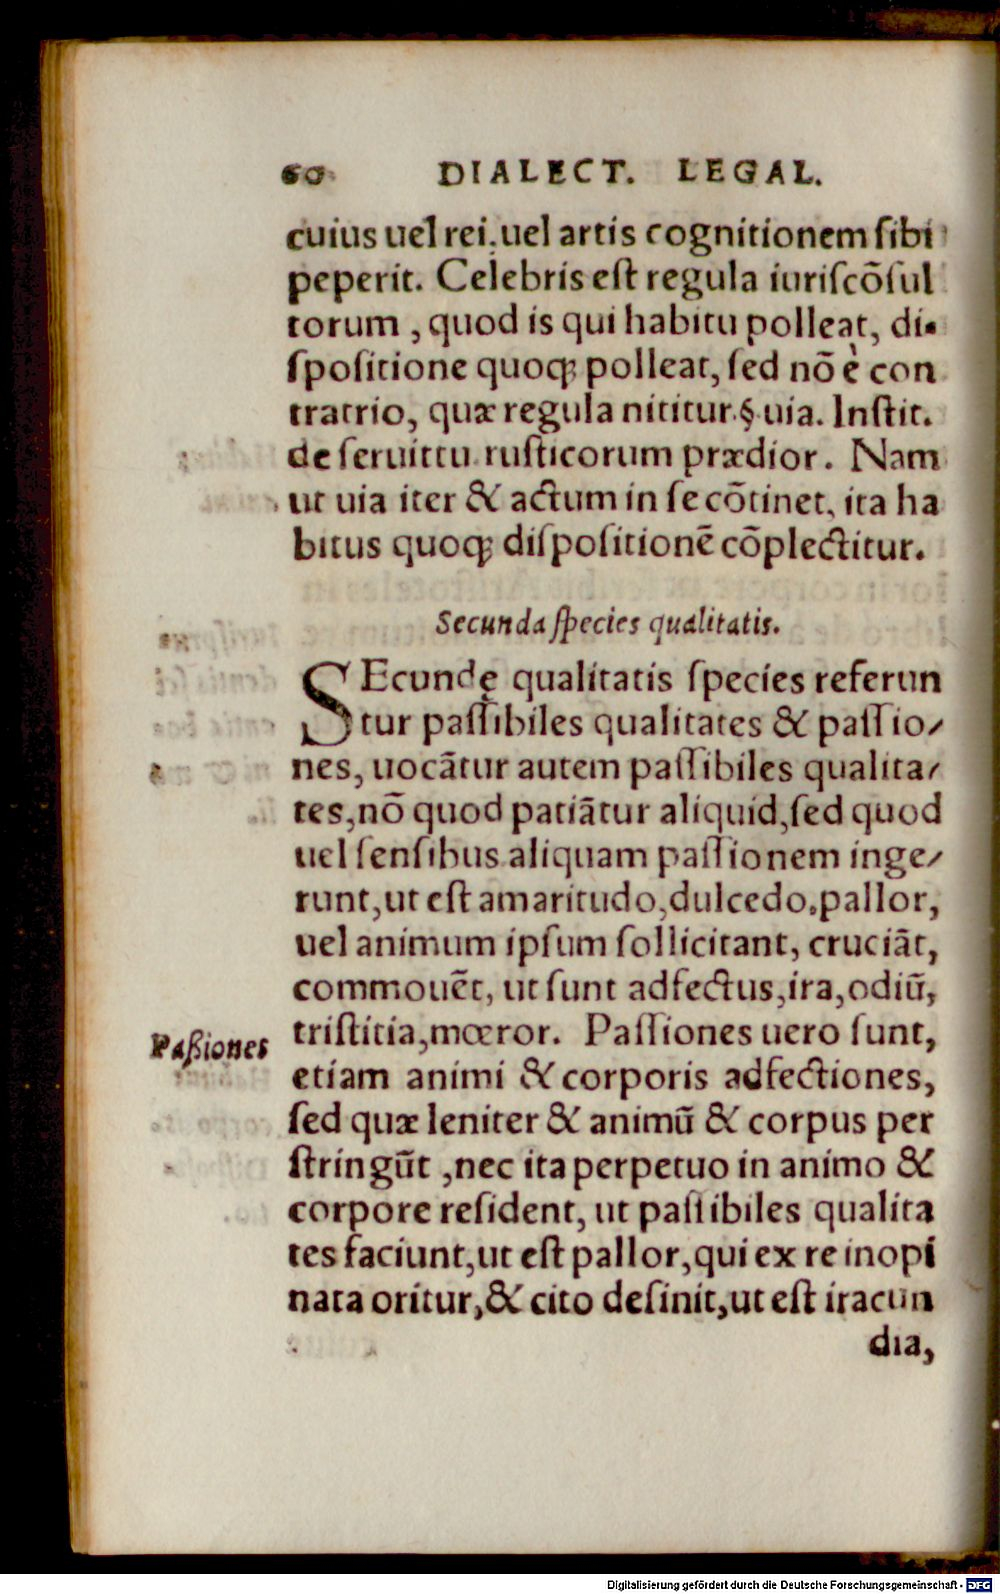 60 DIALECT. LEGAL.
cuius uel rei. uel artis cognitionem ſibi
peperit. Celebris eſt regula iuriſcōſul
torum , quod is qui habitu polleat, di-
ſpoſitione quoq; polleat, ſed nō è con
trarrio, quæ regula nititur.§.uia. Inſtit.
de ſeruittu ruſticorum prædior. Nam
ut uia iter & actum in ſe cōtinet, ita ha
bitus quoq; diſpoſitionē cōplectitur.
Secunda ſpecies qualitatis.
SEcundę qualitatis ſpecies referun
tur paſſibiles qualitates & paſſio-
nes, uocātur autem paſſibiles qualita-
tes, nō quod patiātur aliquid, ſed quod
uel ſenſibus aliquam paſſionem inge-
runt, ut eſt amaritudo, dulcedo, pallor,
uel animum ipſum ſollicitant, cruciāt,
commouēt, ut ſunt adfectus, ira, odiū,
triſtitia, mœror. Paſſiones uero ſunt,
Paßiones
etiam animi & corporis adfectiones,
ſed quæ leniter & animū & corpus per
ſtringūt , nec ita perpetuo in animo &
corpore reſident, ut paſſibiles qualita
tes faciunt, ut eſt pallor, qui ex re inopi
nata oritur, & cito deſinit, ut eſt iracun
dia,
Digitalisierung gefördert durch die Deutsche Forschungsgemeinschaft - DFG